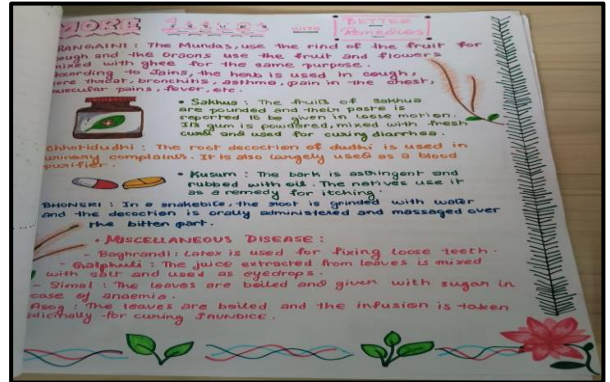 MORE Issues WITH BETTER Remedies
RANGAINI : The Mundas, use the rind of the fruit for
ough and the Oraons use the fruit and flowers
mixed with ghee for the same purpose.
ccording to Jains, the herb is used in cough,
ore throat, bronchitis, asthma, pain in the chest,
uscular pains, fever, etc.
• Sakhua : The fruits of sakhua
are pounded and their paste is
reported to be given in loose motion.
Its gum is powdered, mixed with fresh
curd and used for curing diarrhoea.
Chhotidudhi : The root decoction of dudhi is used in
urinary complaints. It is also largely used as a blood
purifier.
• Kusum : The bark is astringent and
rubbed with oil. The natives use it
as a remedy for itching.
BHONERI : In a snakebite, the root is grinded with water
and the decoction is orally administered and massaged over
the bitten part.
• MISCELLANEOUS DISEASE :
- Baghrandi : Latex is used for fixing loose teeth.
- Galphuli : The juice extracted from leaves is mixed
with salt and used as eyedrops.
- Simal : The leaves are boiled and given with sugar in
case of anaemia.
Asog : The leaves are boiled and the infusion is taken
dicinally for curing JAUNDICE.